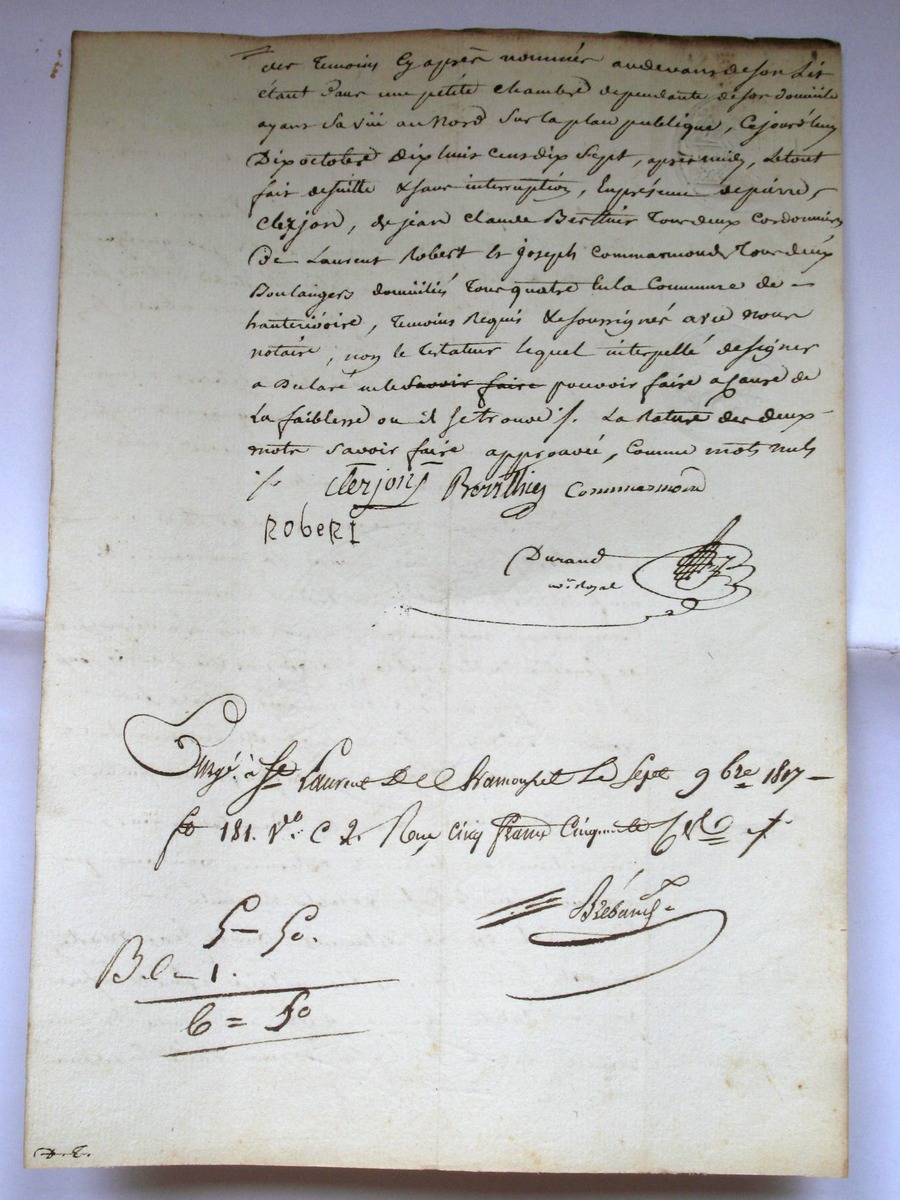 des temoins cy après nommés audevant de son lit
etant dans une petite chambre dependante de son domicile
ayant sa vüe au Nord sur la place publique, Cejourd'huy
Dix octobre dix huit cens dix sept, après midy, le tout
fait de suitte & sans interruption, En présence de pierre
Clerjon, de jean Claude Berthier Tous deux cordonniers
De Laurent Robert & joseph Commarmond Tous deux
Boulangers domiciliés Tous quatre En la Commune de
hauterivoire, Temoins Requis & soussignés avec nous
notaire, non le Testateur lequel interpellé de signer
a Declaré ne le savoir faire pouvoir faire a Cause de
La faiblesse ou il se trouve ⁒. La Rature des deux
mots savoir faire approuvée, Comme mots nuls
⁒ Clerjon Berthier Commarmond
RobeRt
Durand
no.re Royal
Enrgé. à St Laurent De Chamousset Le Sept 9bre 1817
fo 181. Vo. C 2. Reçu Cinq francs Cinquante
5 – 50.
D.e – 1.
6 = 50
D. T.